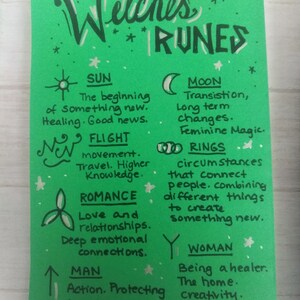 Witches
RUNES
SUN
The beginning
of something new.
Healing. Good news.
MOON
Transistion,
Long term
changes.
Feminine Magic.
FLIGHT
movement.
Travel. Higher
Knowledge.
RINGS
circumstances
that connect
people. combining
different things
to create
something new.
ROMANCE
Love and
relationships.
Deep emotional
connections.
WOMAN
Being a healer.
The home.
creativity.
MAN
Action. Protecting